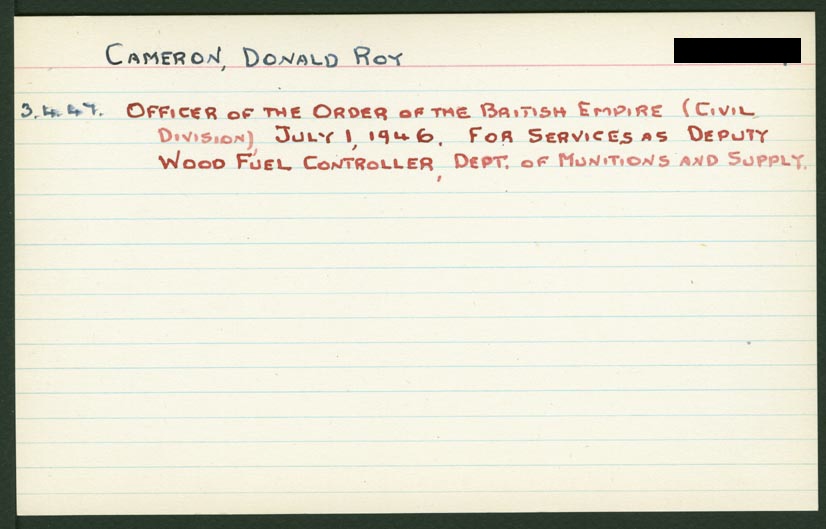 CAMERON, DONALD ROY
3.4.47. OFFICER OF THE ORDER OF THE BRITISH EMPIRE (CIVIL
DIVISION), JULY 1, 1946. FOR SERVICES AS DEPUTY
WOOD FUEL CONTROLLER, DEPT. OF MUNITIONS AND SUPPLY.